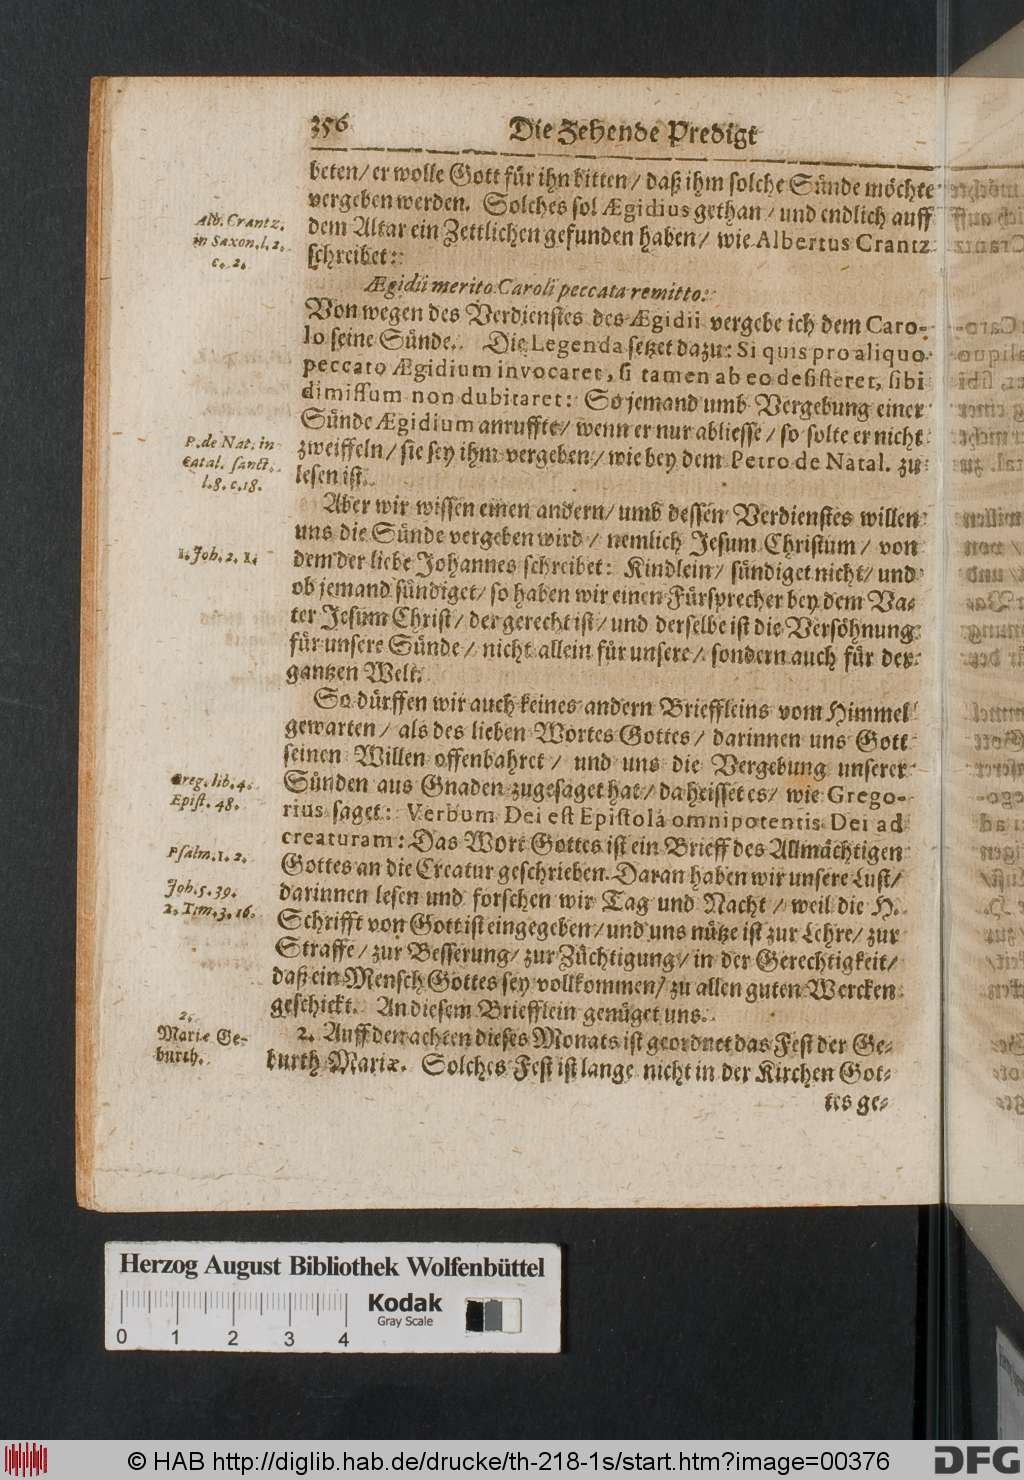 356 Die Zehende Predigt
beten/ er wolle Gott für ihn bitten/ daß ihm solche Sünde möchte
vergeben werden. Solches sol Ægidius gethan/ und endlich auff
dem Altar ein Zettlichen gefunden haben/ wie Albertus Crantz
schreibet:
Alb. Crantz.
in Saxon. l. 2.
c. 2.
Ægidii merito Caroli peccata remitto:
Von wegen des Verdienstes des Ægidii vergebe ich dem Caro-
lo seine Sünde. Die Legenda setzet dazu: Si quis pro aliquo
peccato Ægidium invocaret, si tamen ab eo desisteret, sibi
dimissum non dubitaret: So jemand umb Vergebung einer
Sünde Ægidium anruffte/ wenn er nur abliesse/ so solte er nicht
zweiffeln/ sie sey ihm vergeben/ wie bey dem Petro de Natal. zu
lesen ist.
P. de Nat. in
Catal. sanct.
l. 8. c. 18.
Aber wir wissen einen andern/ umb dessen Verdienstes willen
uns die Sünde vergeben wird/ nemlich Jesum Christum/ von
dem der liebe Johannes schreibet: Kindlein/ sündiget nicht/ und
ob jemand sündiget/ so haben wir einen Fürsprecher bey dem Va-
ter Jesum Christ/ der gerecht ist/ und derselbe ist die Versöhnung
für unsere Sünde/ nicht allein für unsere/ sondern auch für der
gantzen Welt.
1. Joh. 2. 1.
So dürffen wir auch keines andern Brieffleins vom Himmel
gewarten/ als des lieben Wortes Gottes/ darinnen uns Gott
seinen Willen offenbahret/ und uns die Vergebung unserer
Sünden aus Gnaden zugesaget hat/ da heisset es/ wie Grego-
rius saget: Verbum Dei est Epistola omnipotentis Dei ad
creaturam: Das Wort Gottes ist ein Brieff des Allmächtigen
Gottes an die Creatur geschrieben. Daran haben wir unsere Lust/
darinnen lesen und forschen wir Tag und Nacht/ weil die H.
Schrifft von Gott ist eingegeben/ und uns nütze ist zur Lehre/ zur
Straffe/ zur Besserung/ zur Züchtigung/ in der Gerechtigkeit/
daß ein Mensch Gottes sey vollkommen/ zu allen guten Wercken
geschickt. An diesem Briefflein genüget uns.
Greg. lib. 4.
Epist. 48.
Psalm. 1. 2.
Joh. 5. 39.
2. Tim. 3. 16.
2. Auff den achten dieses Monats ist geordnet das Fest der Ge-
burth Mariæ. Solches Fest ist lange nicht in der Kirchen Got-
tes ge-
2.
Mariæ Ge-
burth.
Herzog August Bibliothek Wolfenbüttel
Kodak
Gray Scale
0 1 2 3 4
© HAB http://diglib.hab.de/drucke/th-218-1s/start.htm?image=00376
DFG